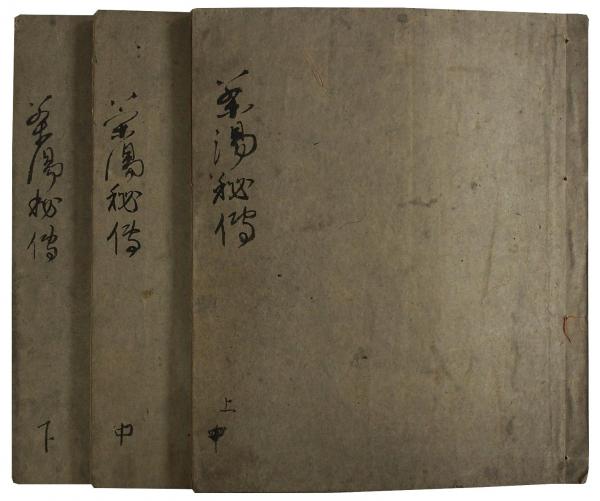 茶湯秘傳
上
中
茶湯秘傳
中
茶湯秘傳
下